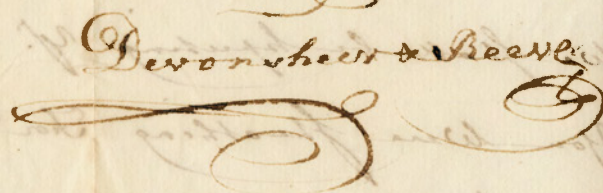 Devonsheir & Reeve